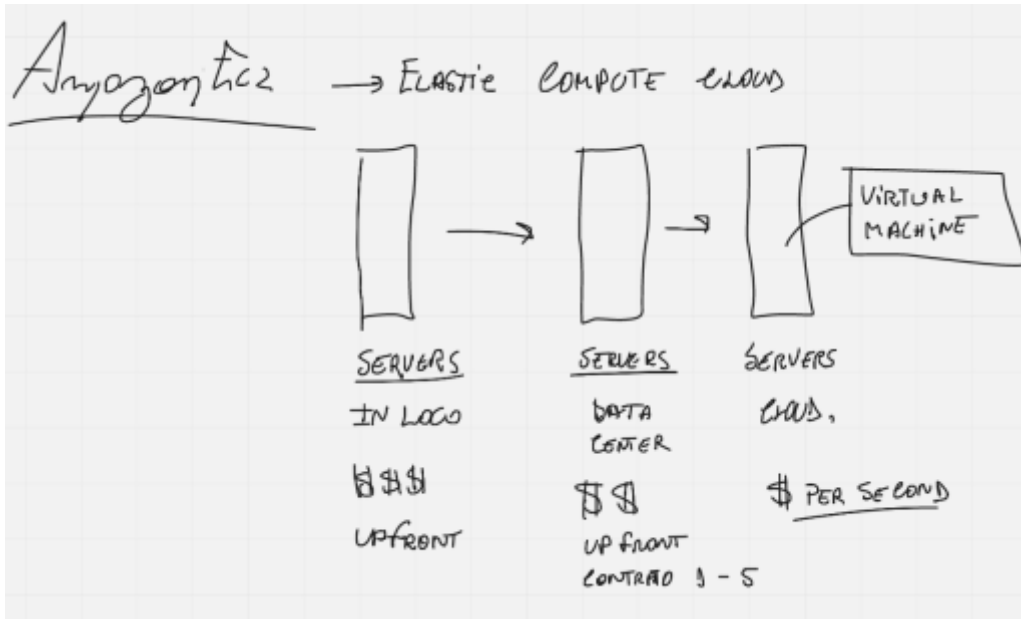 Amazon Ec2 → ELASTIC COMPUTE CLOUD
VIRTUAL
MACHINE
SERVERS
IN LOCO
$$$
UPFRONT
SERVERS
DATA
CENTER
$$
UP FRONT
CONTRATO 1 - 5
SERVERS
CLOUD.
$ PER SECOND